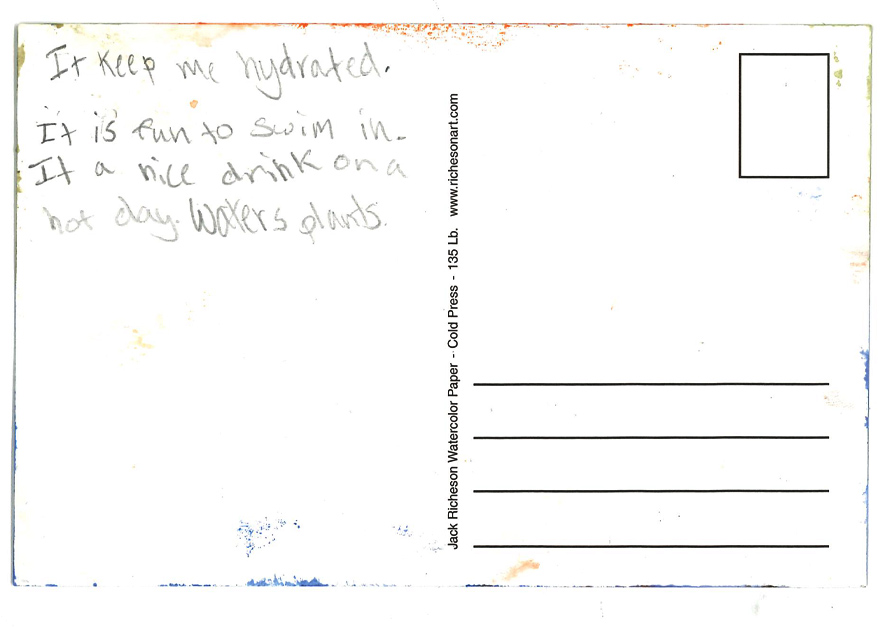 It keep me hydrated.
It is fun to swim in.
It a nice drink on a
hot day. Waters plants.
Jack Richeson Watercolor Paper - Cold Press - 135 Lb. www.richesonart.com